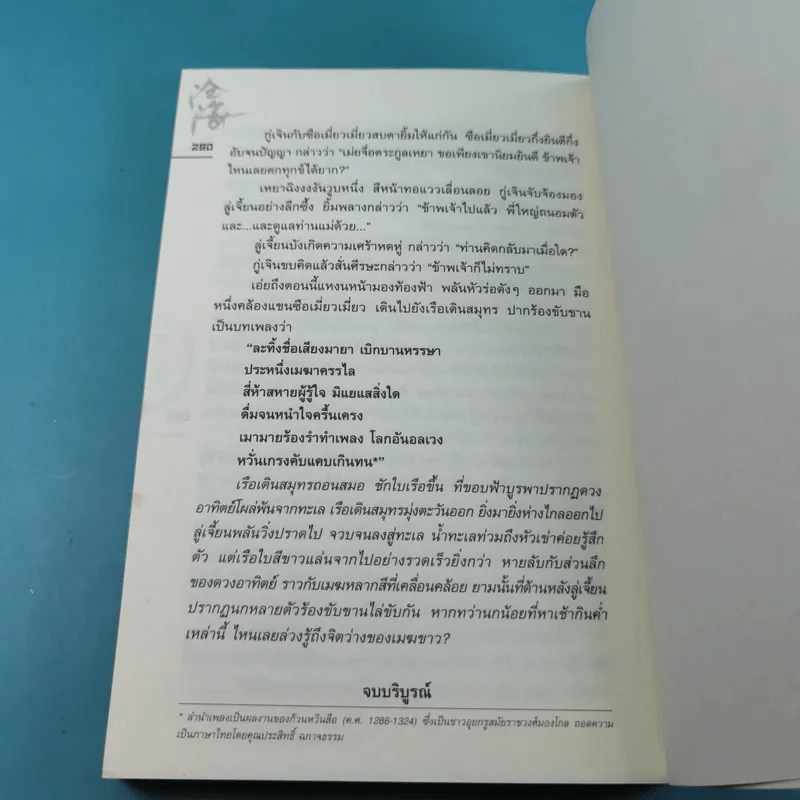 沧海
280
กู่เจินกับซือเมี่ยวเมี่ยวสบตายิ้มให้แก่กัน ซือเมี่ยวเมี่ยวกึ่งยินดีกึ่ง
อับจนปัญญา กล่าวว่า “เม่ยจื่อตระกูลเหยา ขอเพียงเขานิยมยินดี ข้าพเจ้า
ไหนเลยตกทุกข์ได้ยาก?”
เหยาฉิงงงงันวูบหนึ่ง สีหน้าทอแววเลื่อนลอย กู่เจินจับจ้องมอง
ลู่เจี้ยนอย่างลึกซึ้ง ยิ้มพลางกล่าวว่า “ข้าพเจ้าไปแล้ว พี่ใหญ่ถนอมตัว
และ...และดูแลท่านแม่ด้วย...”
ลู่เจี้ยนบังเกิดความเศร้าหดหู่ กล่าวว่า “ท่านคิดกลับมาเมื่อใด?”
กู่เจินขบคิดแล้วสั่นศีรษะกล่าวว่า “ข้าพเจ้าก็ไม่ทราบ”
เอ่ยถึงตอนนี้แหงนหน้ามองท้องฟ้า พลันหัวร่อดังๆ ออกมา มือ
หนึ่งคล้องแขนซือเมี่ยวเมี่ยว เดินไปยังเรือเดินสมุทร ปากร้องขับขาน
เป็นบทเพลงว่า
“ละทิ้งชื่อเสียงมายา เบิกบานหรรษา
ประหนึ่งเมฆาครรไล
สี่ห้าสหายผู้รู้ใจ มิแยแสสิ่งใด
ดื่มจนหนำใจครื้นเครง
เมามายร้องรำทำเพลง โลกอันอลเวง
หวั่นเกรงคับแคบเกินทน*”
เรือเดินสมุทรถอนสมอ ชักใบเรือขึ้น ที่ขอบฟ้าบูรพาปรากฏดวง
อาทิตย์โผล่พ้นจากทะเล เรือเดินสมุทรมุ่งตะวันออก ยิ่งมายิ่งห่างไกลออกไป
ลู่เจี้ยนพลันวิ่งปราดไป จวบจนลงสู่ทะเล น้ำทะเลท่วมถึงหัวเข่าค่อยรู้สึก
ตัว แต่เรือใบสีขาวแล่นจากไปอย่างรวดเร็วยิ่งกว่า หายลับกับส่วนลึก
ของดวงอาทิตย์ ราวกับเมฆหลากสีที่เคลื่อนคล้อย ยามนั้นที่ด้านหลังลู่เจี้ยน
ปรากฏนกหลายตัวร้องขับขานไล่ขับกัน หากทว่านกน้อยที่หาเช้ากินค่ำ
เหล่านี้ ไหนเลยล่วงรู้ถึงจิตว่างของเมฆขาว?
จบบริบูรณ์
* ลำนำเพลงเป็นผลงานของก้วนหวินสือ (ค.ศ. 1286-1324) ซึ่งเป็นชาวอุยกูรสมัยราชวงศ์มองโกล ถอดความ
เป็นภาษาไทยโดยคุณประสิทธิ์ ฉกาจธรรม